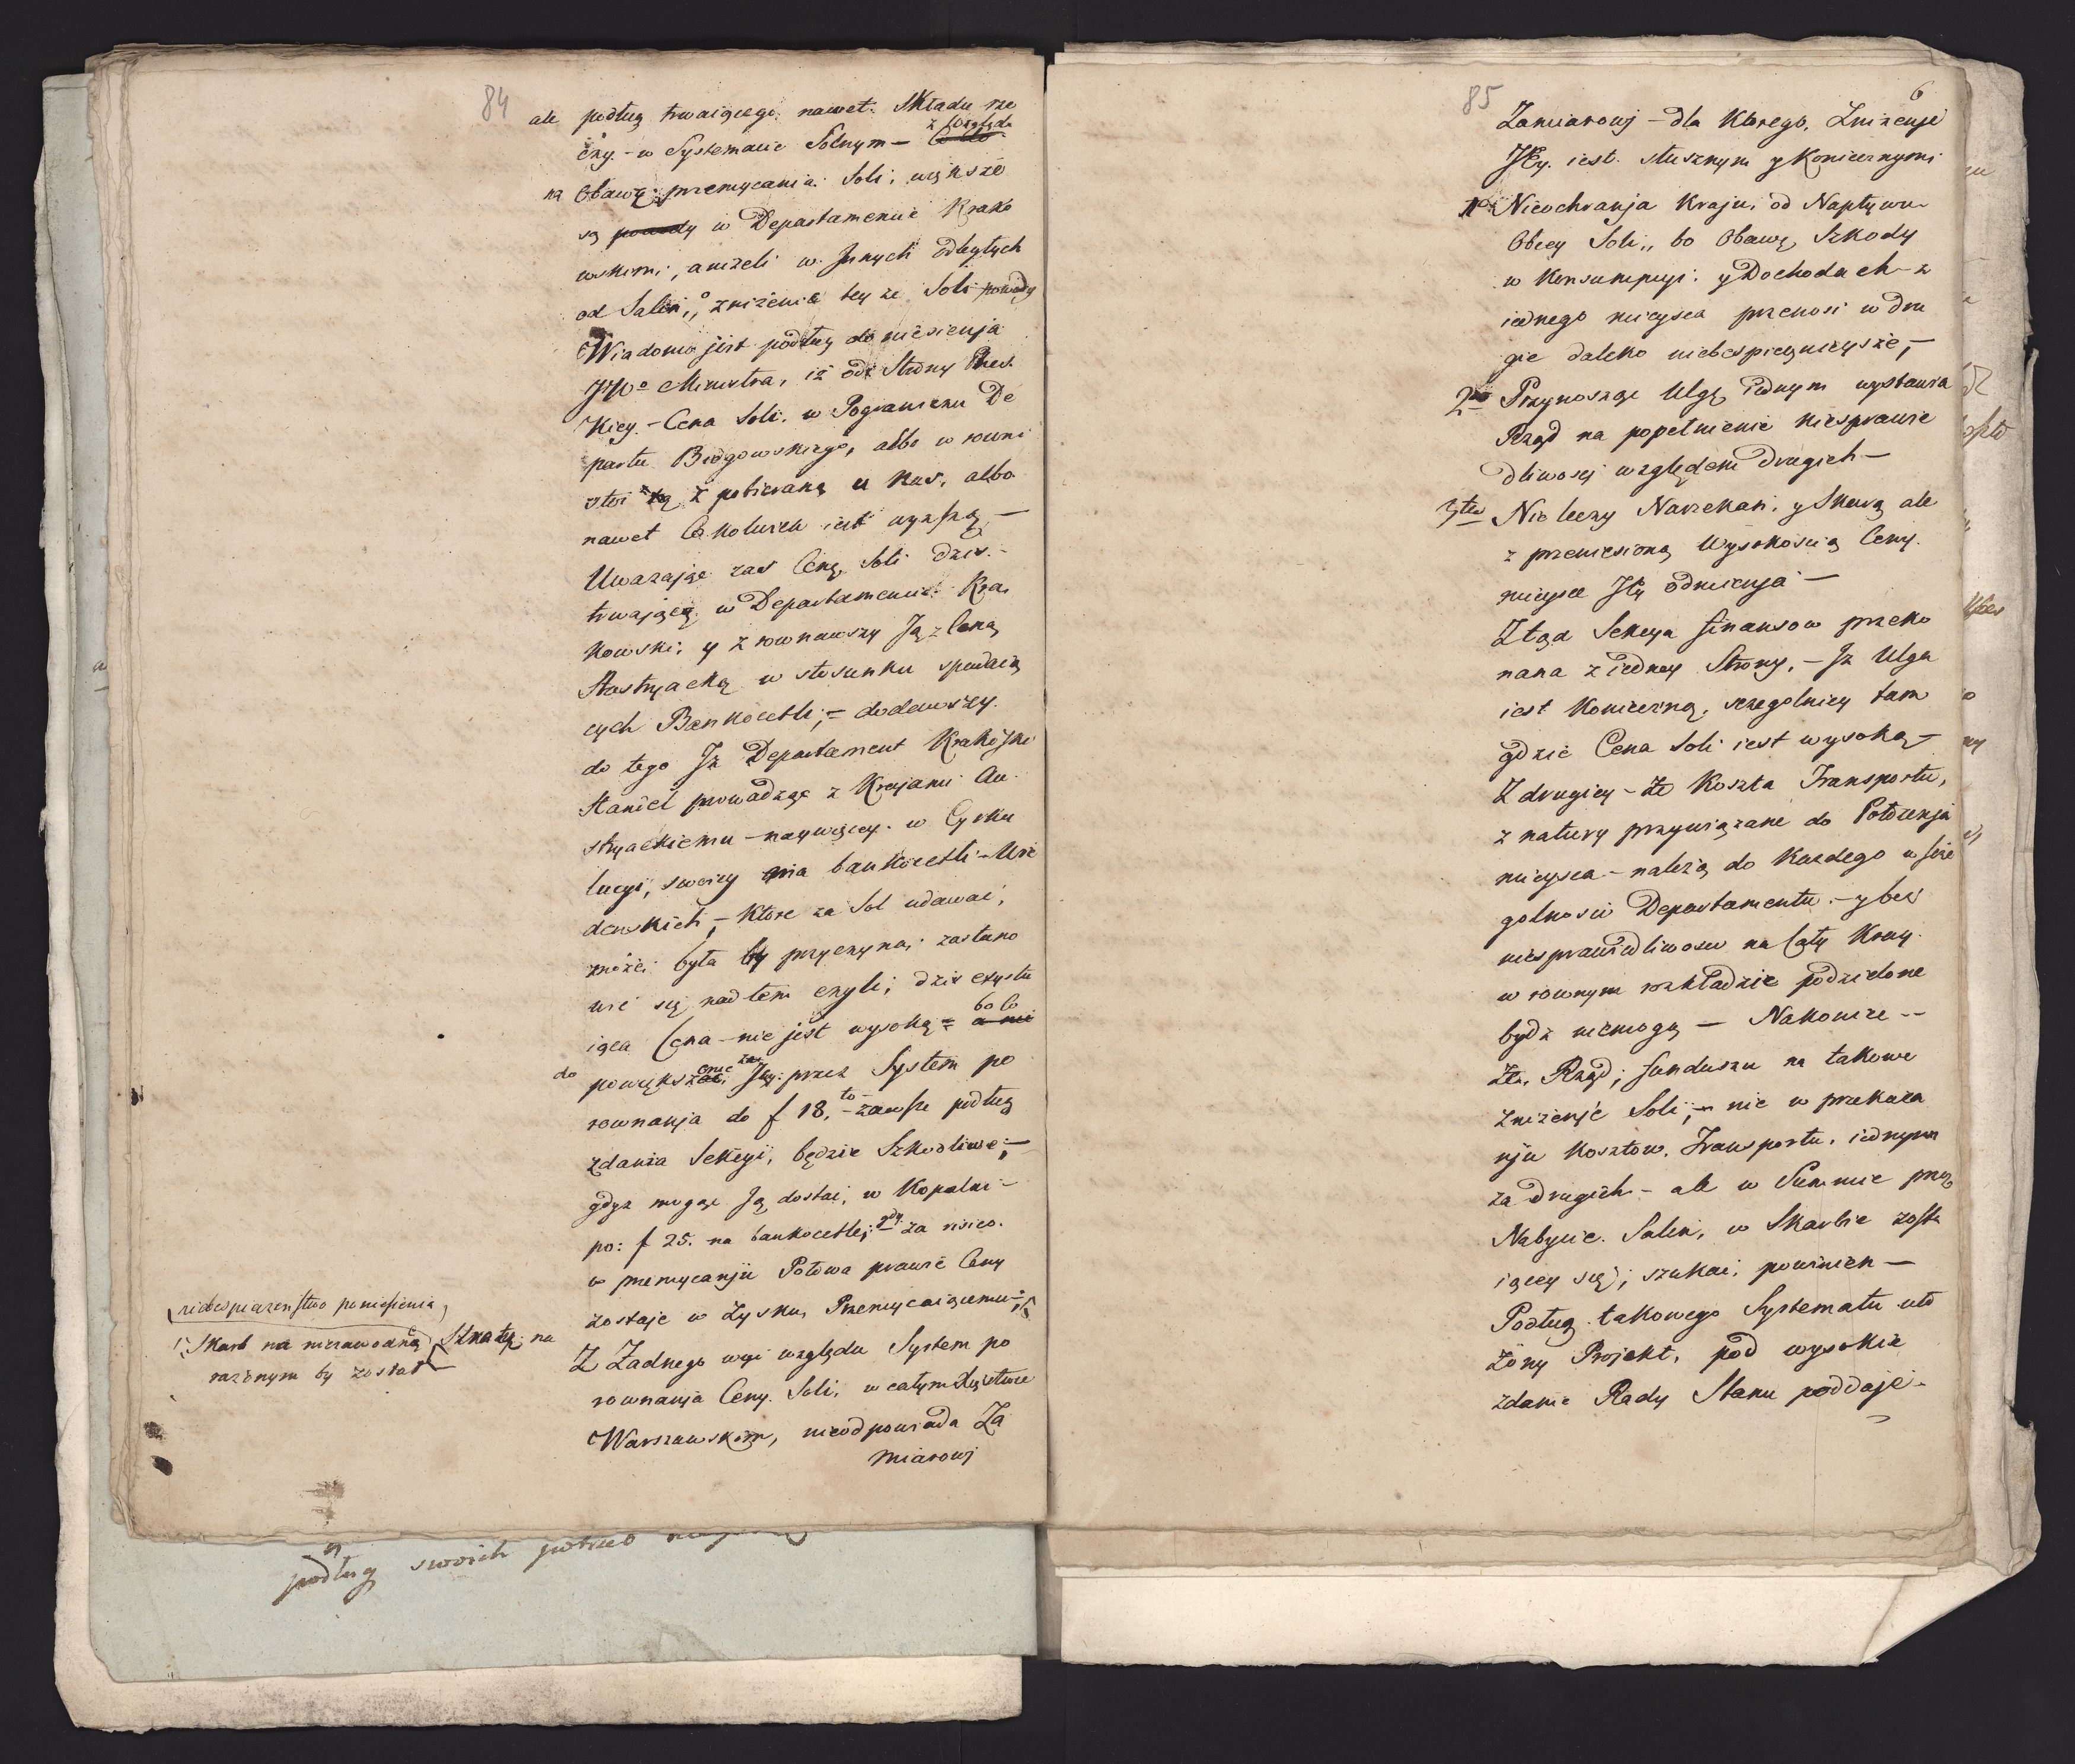 84
ale podług trwaiącego nawet Składu rze
czy - w Systemacie Solnym - z względu
na Obawę przemycania Soli, większe
są powody w Departamencie Krako
wskim, aniżeli w Innych odległych
od Salin, zniżenia tey że Soli powody
Wiadomo jest podług doniesienja
JWo Ministra, iż od Strony Prus
Kiey - Cena Soli w Pograniczu De
partu Bydgowskiego, albo w rowni
stoi z pobieraną u nas, albo
nawet Cokolwiek iest wyższą —
Uwazając zas Cenę Soli dzis
trwającą w Departamencie Kra
kowski, y zrownawszy Ją z Ceną
Austryacką w stosunku spadaią
cych Bankocetli; = dodawszy
do tego Iż Departament Krakoski
Handel prowadząc z Krajami Au
stryackiemi - naywięcey w Cyrku
lacyi swoiey ma bankocetli Wie
denskich, - Ktore za Sol udawać,
może była by przyczyna zastano
wić się nad tem czyli, dzis exystu
iąca Cena - nie jest wysoką = bo Co
a nie
do powiększenie zas Jey przez System po
rownanja do f 18, to - zawsze podług
zdania Sekcyi, będzie Szkodliwe; —
gdyż mogąc Ją dostać, w Kopalni -
po: f 25. na bankocetle; gdy za nieo
w przemycanju Połowa prawie Ceny
zostaje w Zysku Przemycaiącemu
niebezpieczenstwo poniesienia
Skarb na niezawodną Stratę na
razonym by został —
Z Zadnego więc względu System po
rownanja Ceny Soli, w całym Xięstwie
Warszawskim, nieodpowiada Za
miarowi
85
6
Zamiarowj - dla Ktorego, Zniżenje
Jey iest słusznym y Koniecznymi
1o Nieochranja Kraju, od Napływu
Obcey Soli, bo Obawę Szkody
w Konsumpcyi y Dochodach - z
iednego mieysca przenosi w dru
gie daleko niebespiecznieysze, —
2do Przynosząc Ulgę iednym wystawia
Rząd na popełnienie niesprawie
dliwości względem drugich —
3tio Nie leczy Narzekań, y Skarg ale
z przeniesioną Wysokością Ceny
mieysce Jey odmienja —
Ztąd Sekcya finansow przeko
nana z iedney Strony, - Iż Ulga
iest Konieczną, szczegolniey tam
gdzie Cena Soli iest wysoką —
Z drugiey - że Koszta Transportu,
z natury przywiązane do Położenja
mieysca - należą do Kazdego w szcze
golnosci Departamentu - y bez
niesprawiedliwosci na Cały Kray
w rownym rozkładzie podzielone
bydz niemogą — Nakoniec --
że, Rząd, funduszu na takowe
zniżenje Soli, - nie w przekaza
nju Kosztow Transportu, iednym
za drugich - ale w Summie przez
Nabycie Salin, w Skarbie zosta
iącey się, szukać powinien —
Podług takowego Systematu uło
żony Projekt, pod wysokie
zdanie Rady Stanu poddaje.
podług swoich potrzeb